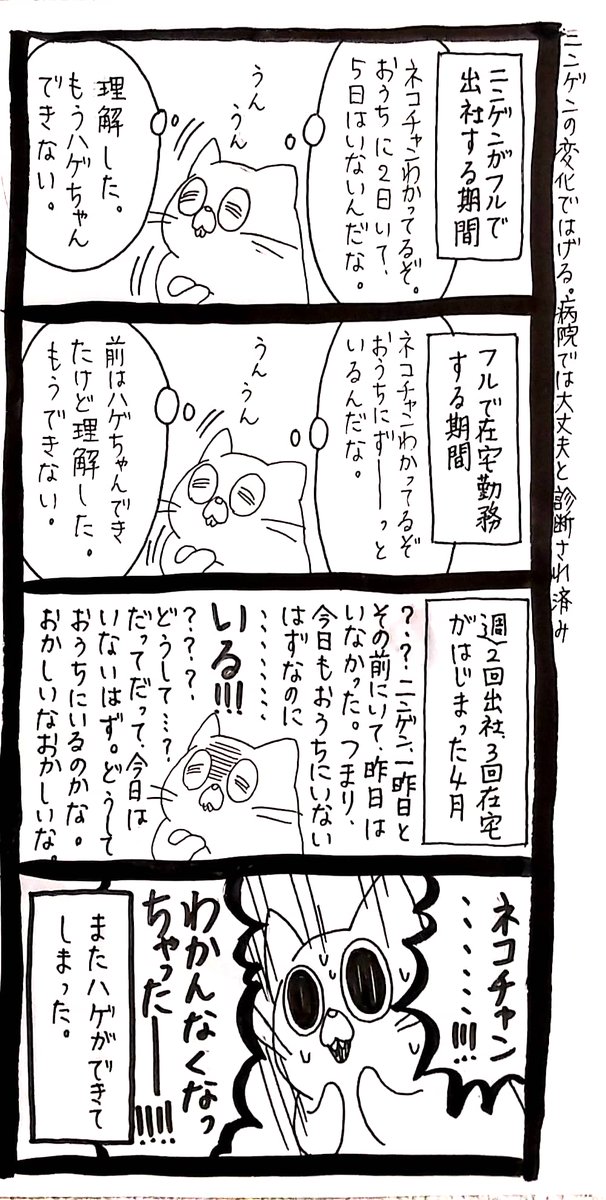 ニンゲンの変化ではげる。病院では大丈夫と診断され済み
ニンゲンがフルで
出社する期間
ネコチャンわかってるぞ。
おうちに2日いて、
5日はいないんだな。
うん
うん
理解した。
もうハゲちゃん
できない。
フルで在宅勤務
する期間
ネコチャンわかってるぞ
おうちにずーーっと
いるんだな。
うん
うん
前はハゲちゃんでき
たけど理解した。
もうできない。
週2回出社、3回在宅
がはじまった4月
???ニンゲン、一昨日と
その前にいて、昨日は
いなかった。つまり、
今日もおうちにいない
はずなのに
………
いる!!!
????
どうして…?
だってだって、今日は
いないはず。どうして
おうちにいるのかな。
おかしいなおかしいな。
ネコチャン
……!!!
わかんなくなっ
ちゃったーー!!!!
またハゲができて
しまった。